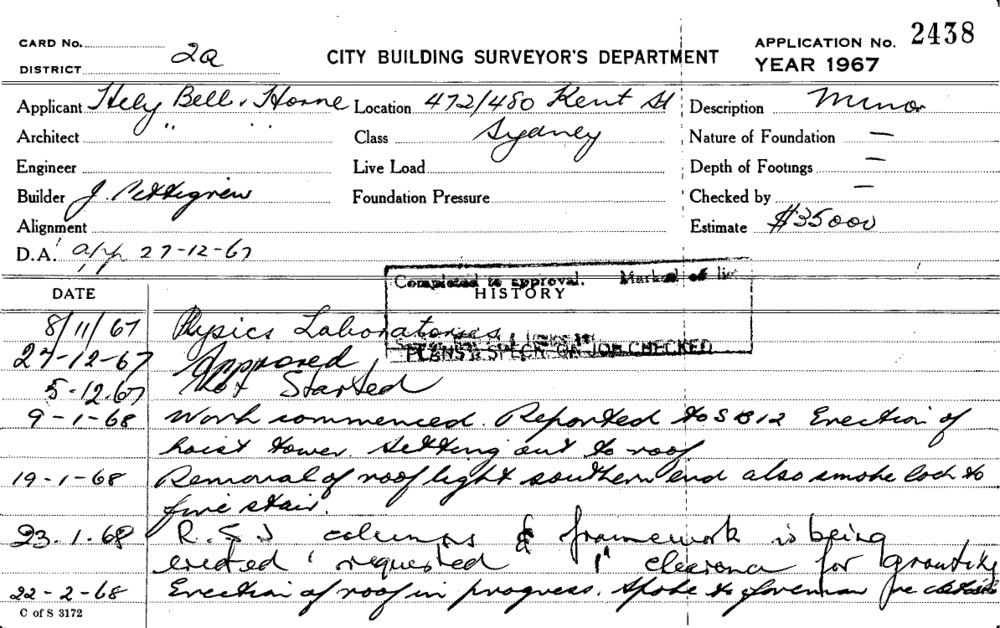 CARD No.
2a
DISTRICT
CITY BUILDING SURVEYOR'S DEPARTMENT
APPLICATION No. 2438
YEAR 1967
Applicant Hely Bell & Horne
Location 472/480 Kent St
Sydney
Description Minor
Architect " "
Class
Nature of Foundation —
Engineer
Live Load
Depth of Footings —
Builder J. Pettigrew
Foundation Pressure
Checked by —
Alignment
Estimate $35000
D.A. app 27-12-67
Completed to approval. Marked off
DATE
HISTORY
8/11/67 Physics Laboratories
PLANS & SPECN ON JOB CHECKED
27-12-67 Approved
5-12.67 Not Started
9-1-68 Work commenced. Reported to S B 12 Erection of
hoist tower. Setting out to roof
19-1-68 Removal of roof light southern end also smoke lock to
fire stair.
23.1.68 R.S.J columns & framework is being
erected requested 1" clearance for grouting
22-2-68 Erection of roof in progress. Spoke to foreman re
C of S 3172